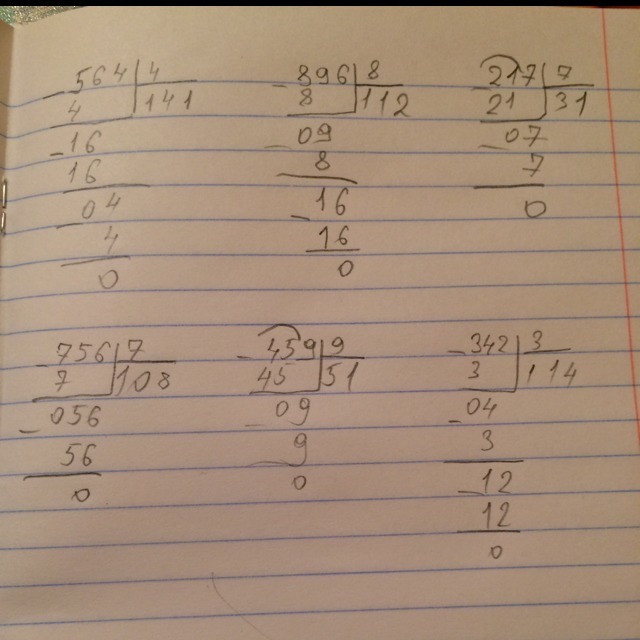 564 4
4 141
16
16
04
4
0
896 8
8 112
09
8
16
16
0
217 7
21 31
07
7
0
756 7
7 108
056
56
0
459 9
45 51
09
9
0
342 3
3 114
04
3
12
12
0